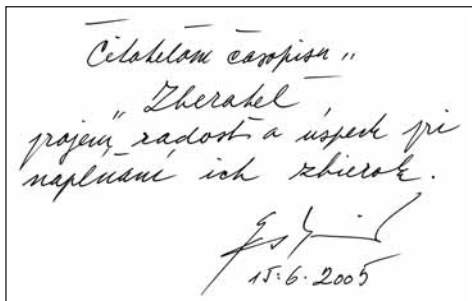 Čitateľom časopisu „
„Zberateľ
prajem radosť a úspech pri
napĺňaní ich zbierok.
15.6.2005